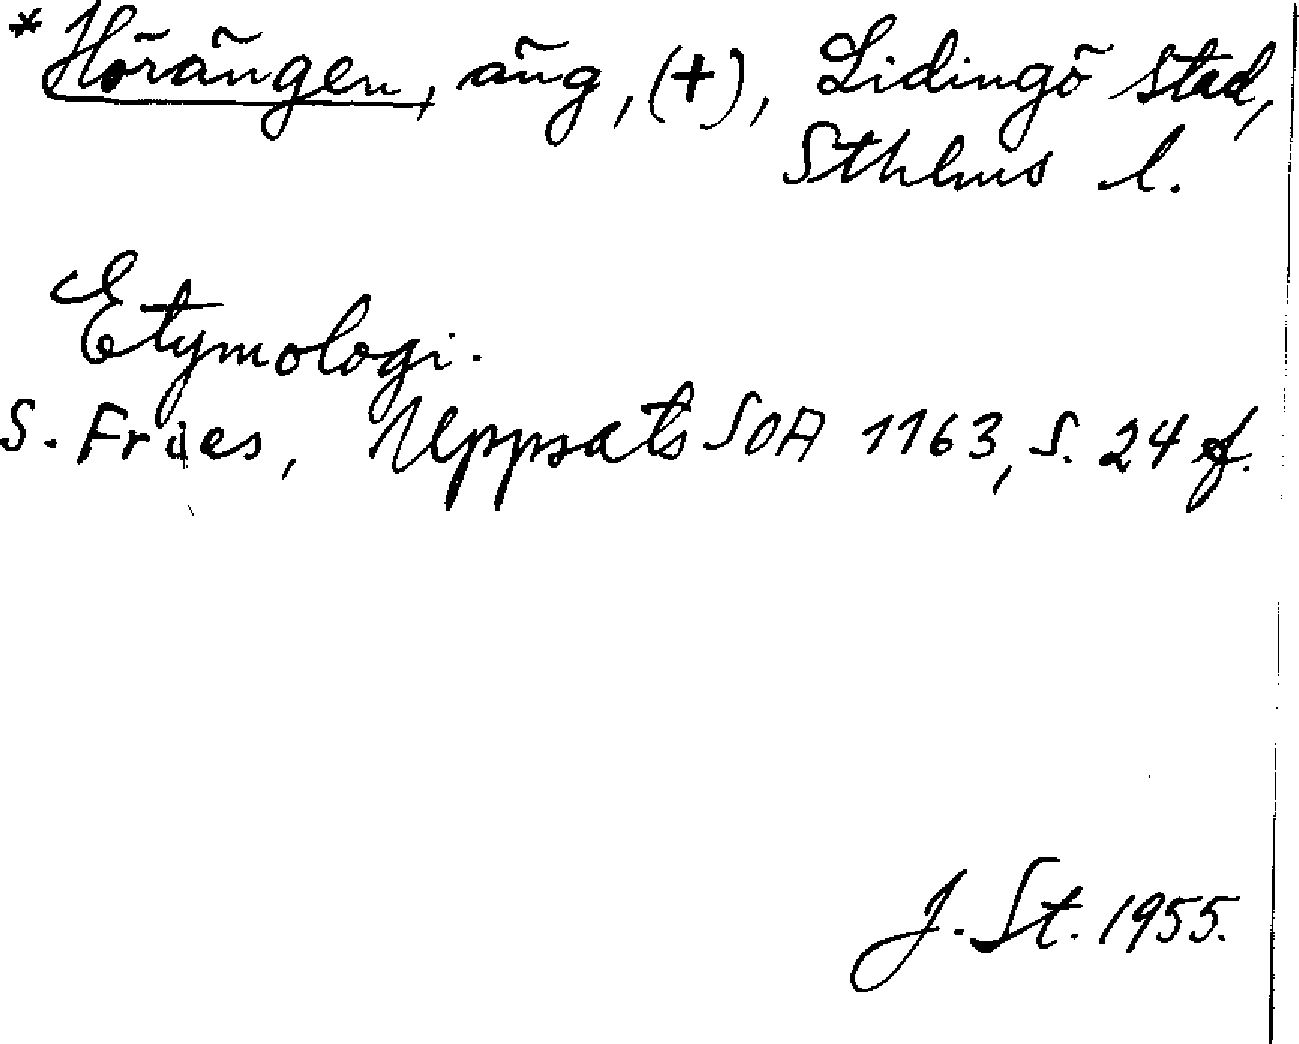 * Hörängen, äng, (+), Lidingö stad,
Sthlms l.
Etymologi.
S. Fries, Uppsats SOA 1163, s. 24 f.
J. St. 1955.